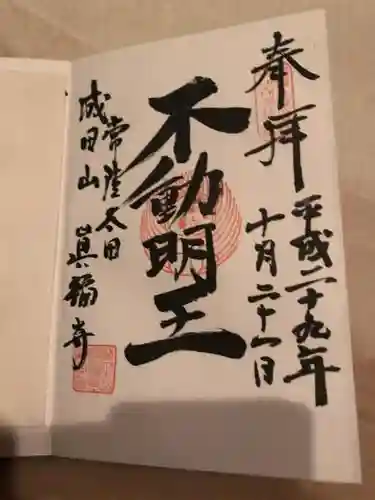 奉拝
平成二十九年
十月二十一日
不動明王
常陸太田
成田山 眞福寺